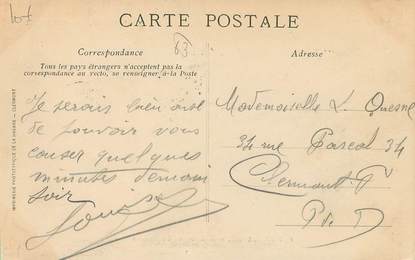 lot
CARTE POSTALE
63
Correspondance
Tous les pays étrangers n'acceptent pas la
correspondance au recto, se renseigner à la Poste
Adresse
Je serais bien aise
de pouvoir vous
causer quelques
minutes demain
soir
Louise
Mademoiselle L. Quesne
34 rue Pascal 34
Clermont Fd
P. de D